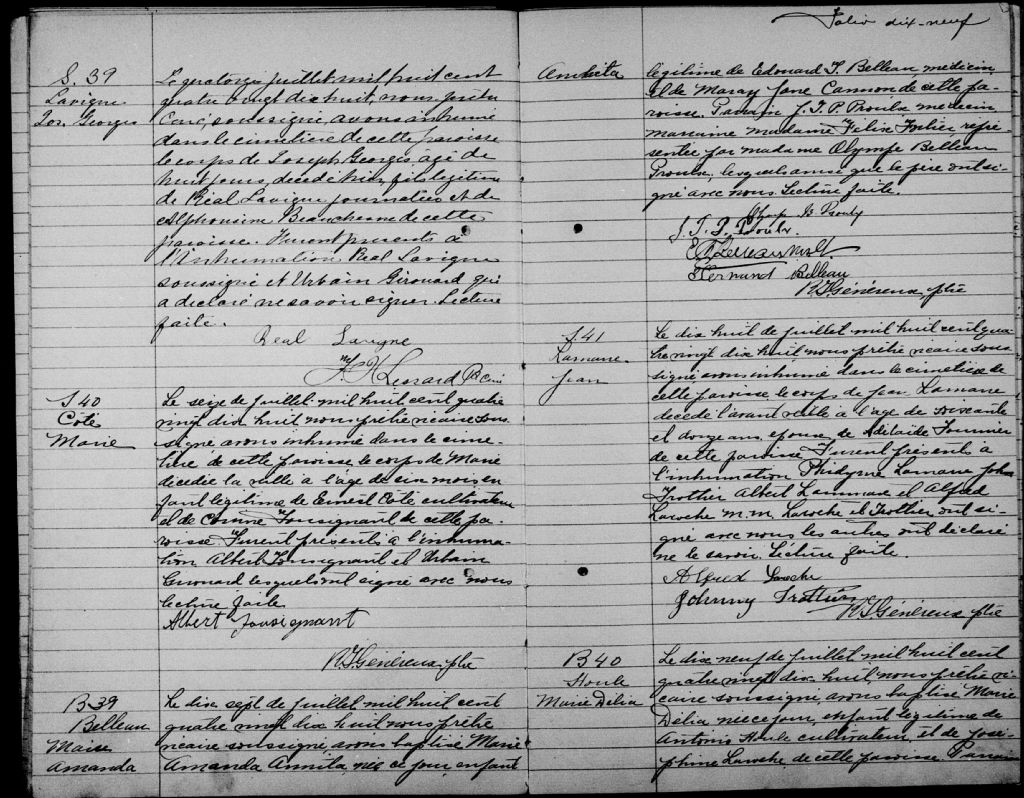 Folio dix-neuf
S. 39
Lavigne
Jos. Georges
Le quatorze juillet mil huit cent
quatre vingt dix huit, nous, prêtre
Curé, soussigné, avons inhumé
dans le cimetière de cette paroisse
le corps de Joseph Georges, âgé de
huit jours, décédé hier, fils légitime
de Réal Lavigne journalier et de
Alphonsine Beauchesne de cette
paroisse. Furent présents à
l'inhumation Réal Lavigne
soussigné et Urbain Girouard qui
a déclaré ne savoir signer. Lecture
faite.
Real Lavigne
Ptre Curé
S 40
Coté
Marie
Le seize de juillet mil huit cent quatre
vingt dix huit nous prêtre vicaire sous
signé avons inhumé dans le cime-
tière de cette paroisse le corps de Marie
décédée la veille à l'âge de six mois en
fant légitime de Ernest Côté cultivateur
et de Corinne Tousignant de cette pa-
roisse Furent présents à l'inhuma-
tion Albert Tousignant et Urbain
Girouard lesquels ont signé avec nous
lecture faite
Albert Tousignant
R. J. Généreux ptre
B 39
Belleau
Marie
Amanda
Le dix sept de juillet mil huit cent
quatre vingt dix huit nous prêtre
vicaire soussigné, avons baptisé Marie
Amanda Annita, née ce jour, enfant
Annita
légitime de Edouard J. Belleau, médecin
et de Mary Jane Cannon de cette pa-
roisse. Parrain J. T. P. Proulx médecin
marraine madame Félix Fortier repré-
sentée par madame Olympe Belleau
Proulx, lesquels ainsi que le père ont si-
gné avec nous Lecture faite.
B Proulx
J. T. P. Proulx.
Belleau
Fernand Belleau
R J Généreux ptre
S. 41
Lamarre
Jean
Le dix huit de juillet mil huit cent qua-
tre vingt dix huit nous prêtre vicaire sous-
signé avons inhumé dans le cimetière de
cette paroisse le corps de Jean Lamarre
décédé l'avant veille à l'age de soixante
et douze ans, epoux de Adélaïde Fournier
de cette paroisse Furent présents à
l'inhumation Lamarre John
Trothier Albert Lammare et Alfred
Laroche M. M. Laroche et Trothier ont si-
gné avec nous les autres ont déclaré
ne le savoir. Lecture faite.
Alfred Laroche
Johnny Trothier
R J Généreux ptre
B 40
Houle
Marie Délia
Le dix neuf de juillet mil huit cent
quatre vingt dix huit nous prêtre vi-
caire soussigné, avons baptisé Marie
Délia née ce jour, enfant légitime de
Antonio Houle cultivateur et de José-
phine Laroche de cette paroisse Parrain